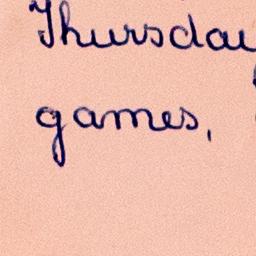 Thursday
games,